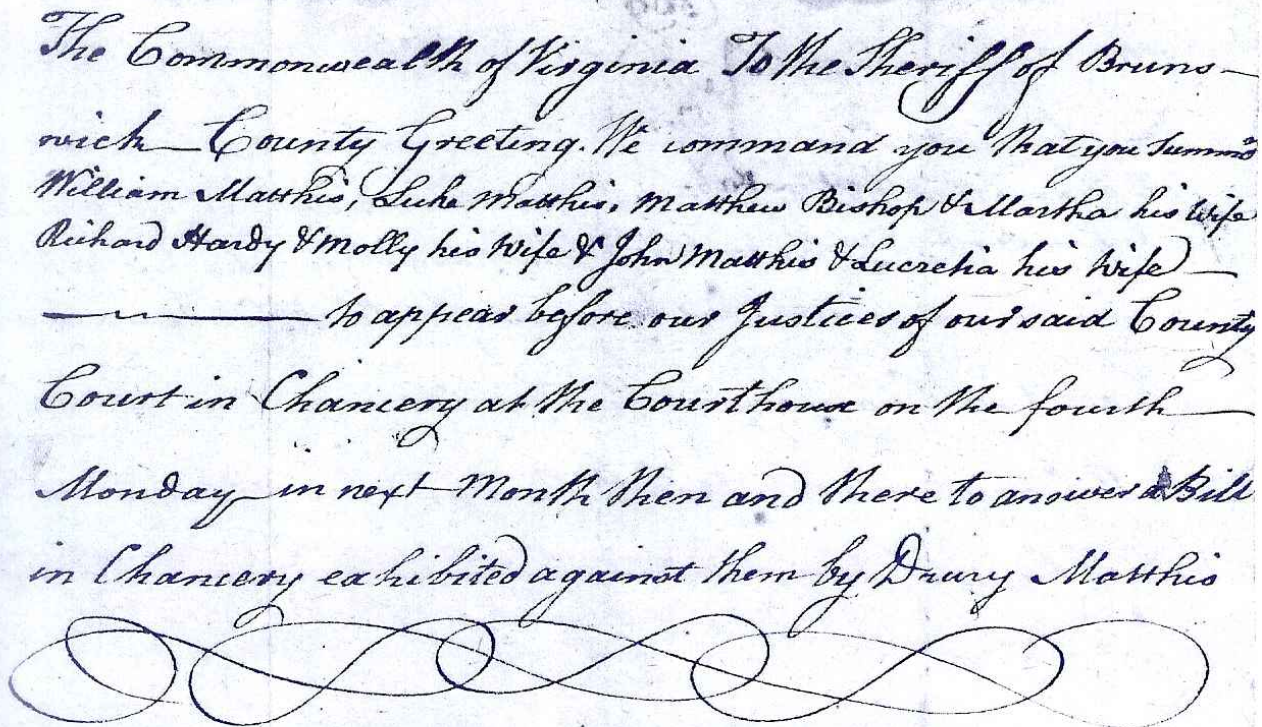 The Commonwealth of Virginia To the Sheriff of Bruns-
wick County Greeting. We command you that you Summo
William Matthis, Luke Matthis, Matthew Bishop & Martha his Wife
Richard Hardy & Molly his Wife & John Matthis & Lucretia his Wife
to appear before our Justices of our said County
Court in Chancery at the Courthouse on the fourth
Monday in next Month then and there to answer a Bill
in Chancery exhibited against them by Drury Matthis